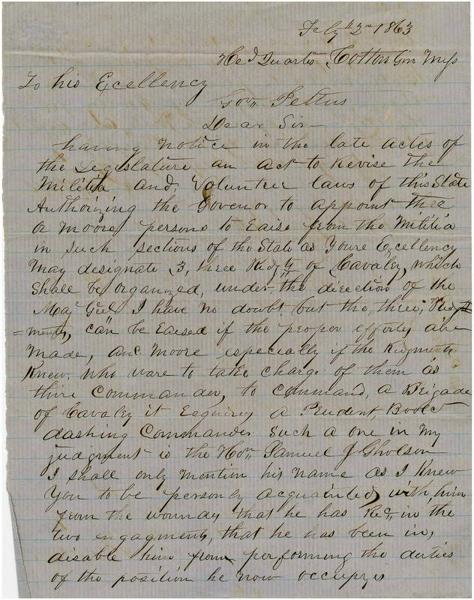 Feby 2nd 1863
Hed Quarters, Cotton Gin Miss
To his Ecellency
Gov Pettus
Dear Sir
having Notice in the late actes of
the Legislature an act to Revise the
Militia and Volunteer laws of this State
Authorizing the Govenor to appoint three
or moore persons to Raise from the Militia
in such sections of the State as Youre Excellency
May designate, 3, three of Cavalry, which
shall be organized, under the direction of the
Maj Genl I have no doubt but the three,
=ments, can be Raised if the propor efforts are
Made, and Moore especially if the Regments
Knew, who ware to take charge of them as
thire Commander, to command, a Brigade
of Cavalry it Esquires a Prudent
dashing Commander such a one in my
judgment is the Hon Samuel J Gholson
I shall only mention his name as I Knew
You to be personly acquainted with him
from the wounday that he has Recd in the
two engagments, that he has been in,
disable him from performing the duties
of the position he now occupyes